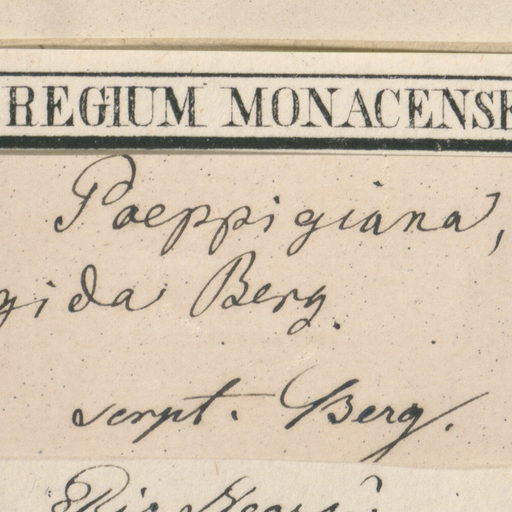 REGIUM MONACENSE
Poeppigiana,
gida Berg.
script. Berg.